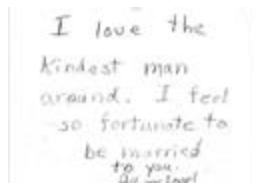 I love the
kindest man
around. I feel
so fortunate to
be married
to you.